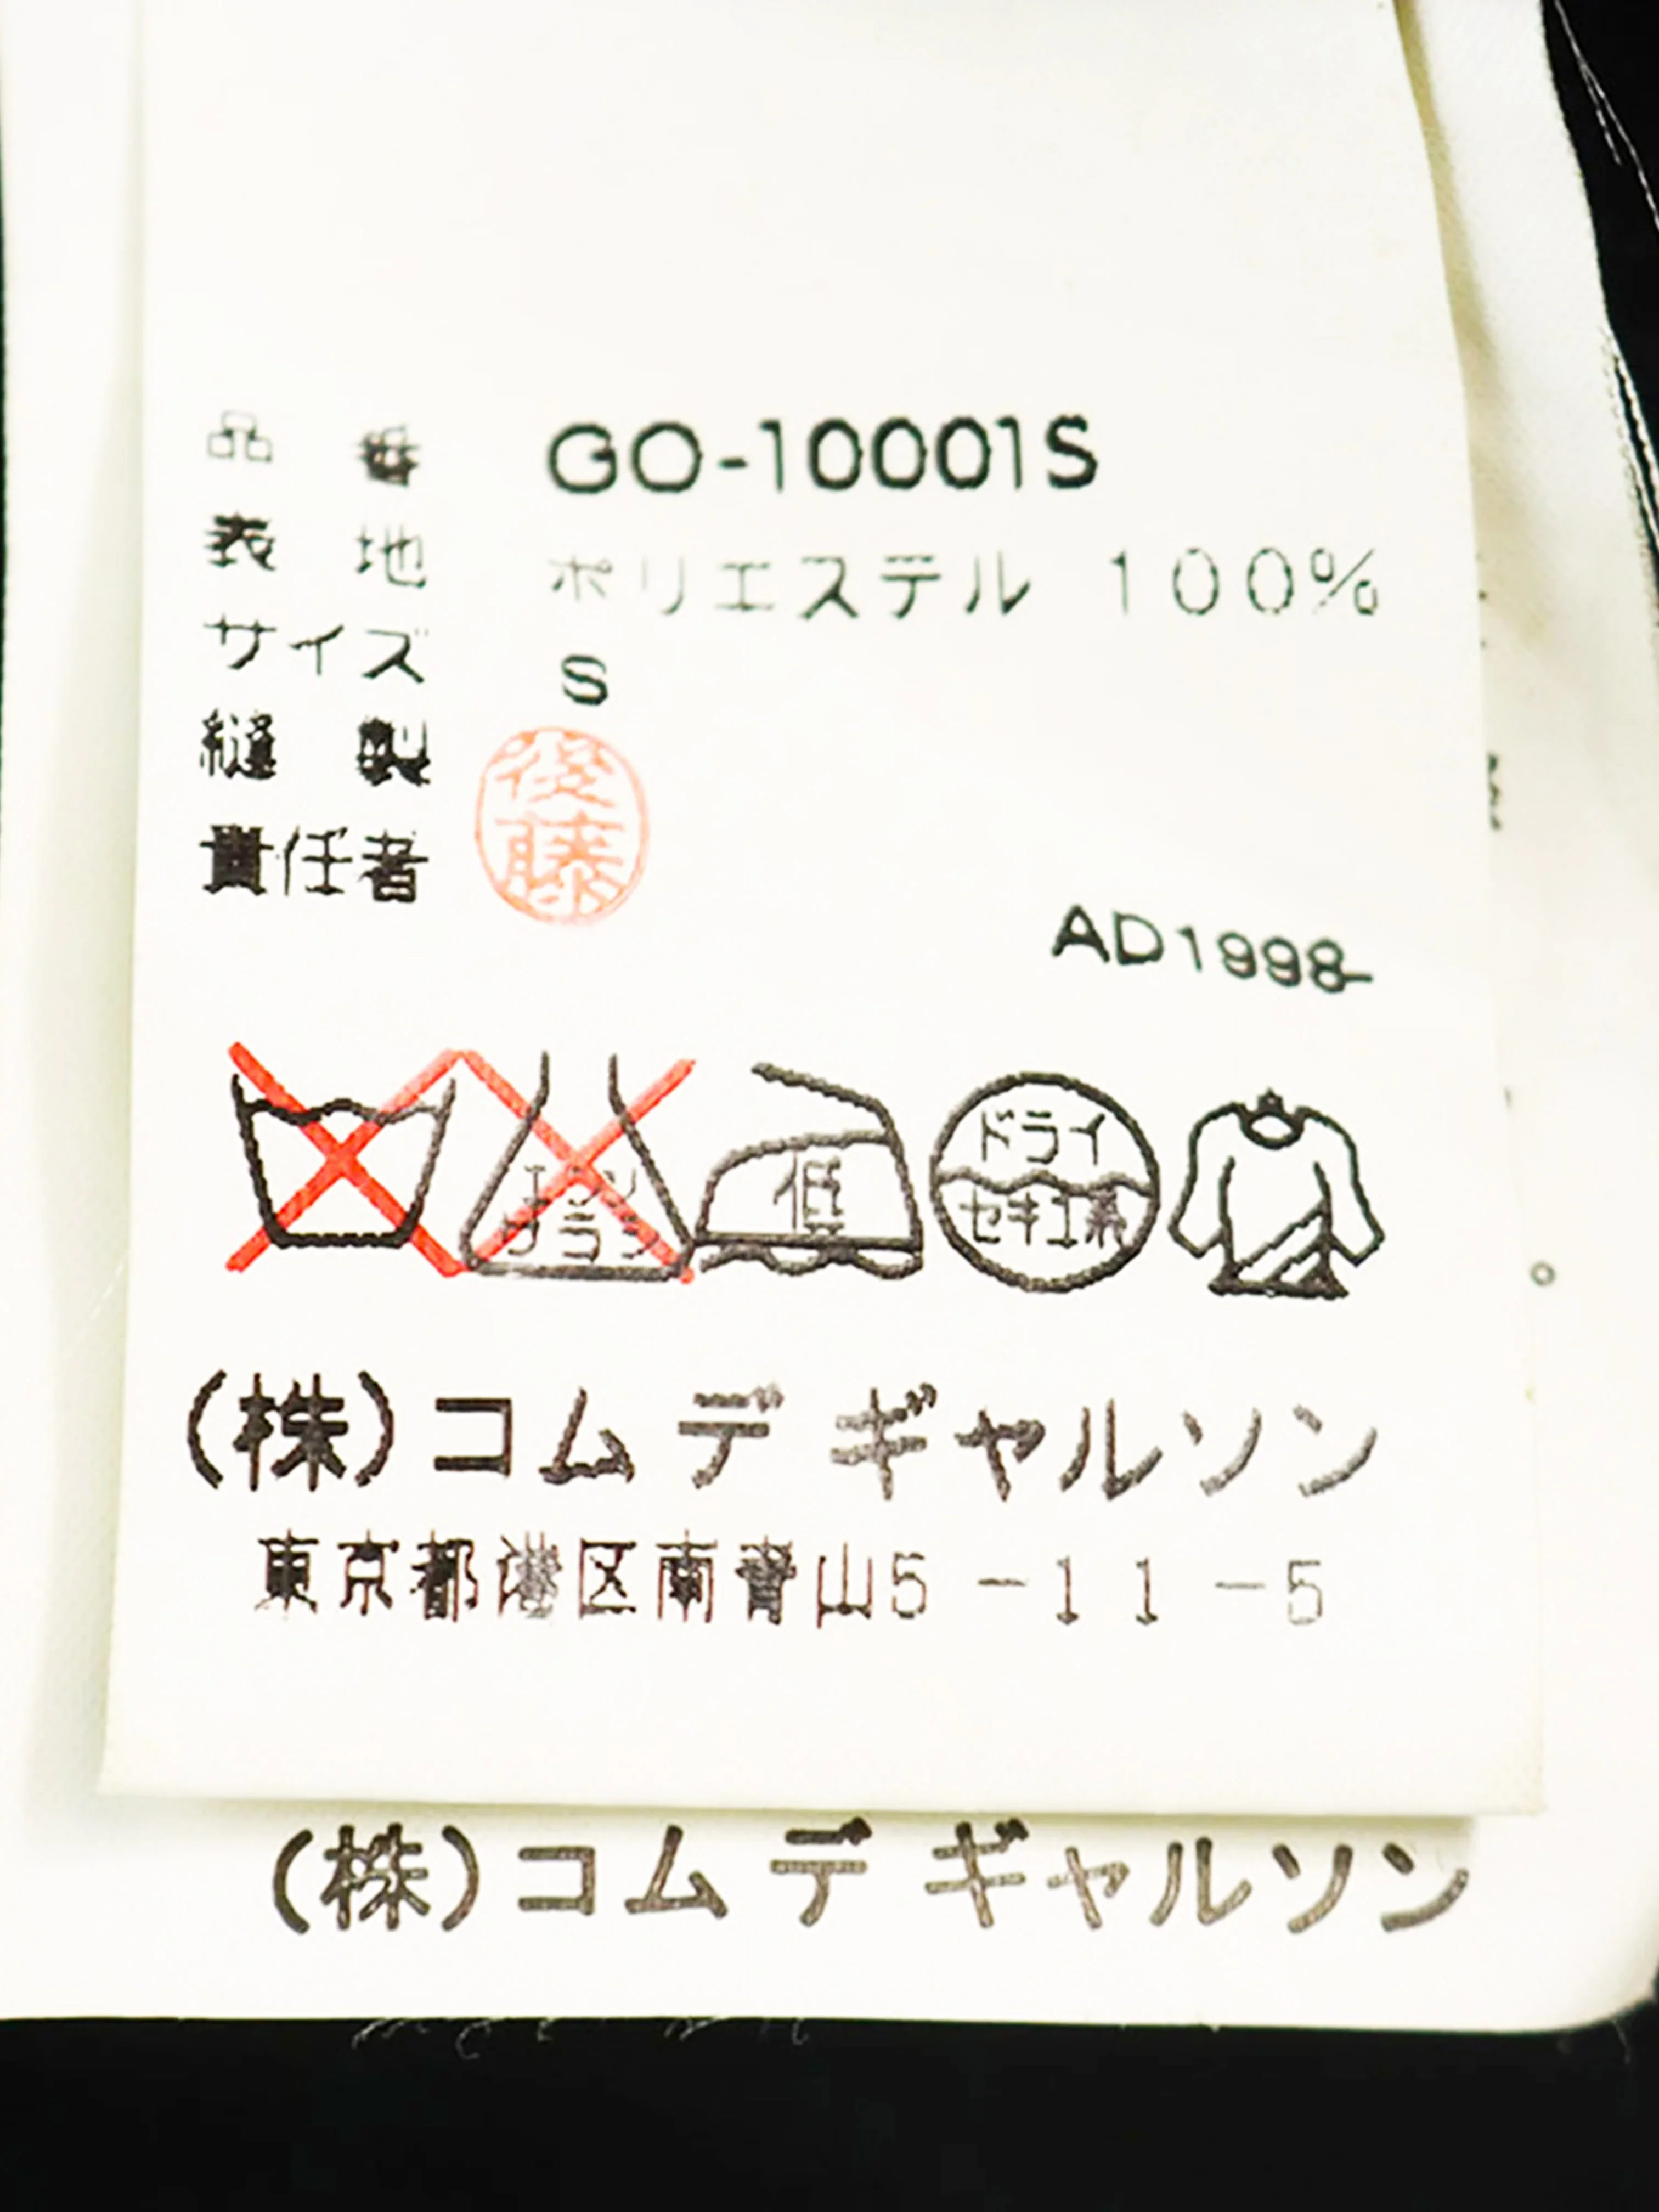 品番 GO-10001S
表地 ポリエステル 100%
サイズ S
縫製
責任者 後藤
AD1998-
エンソ
サラシ
低
ドライ
セキユ系
(株)コム デ ギャルソン
東京都港区南青山5-11-5
(株)コム デ ギャルソン